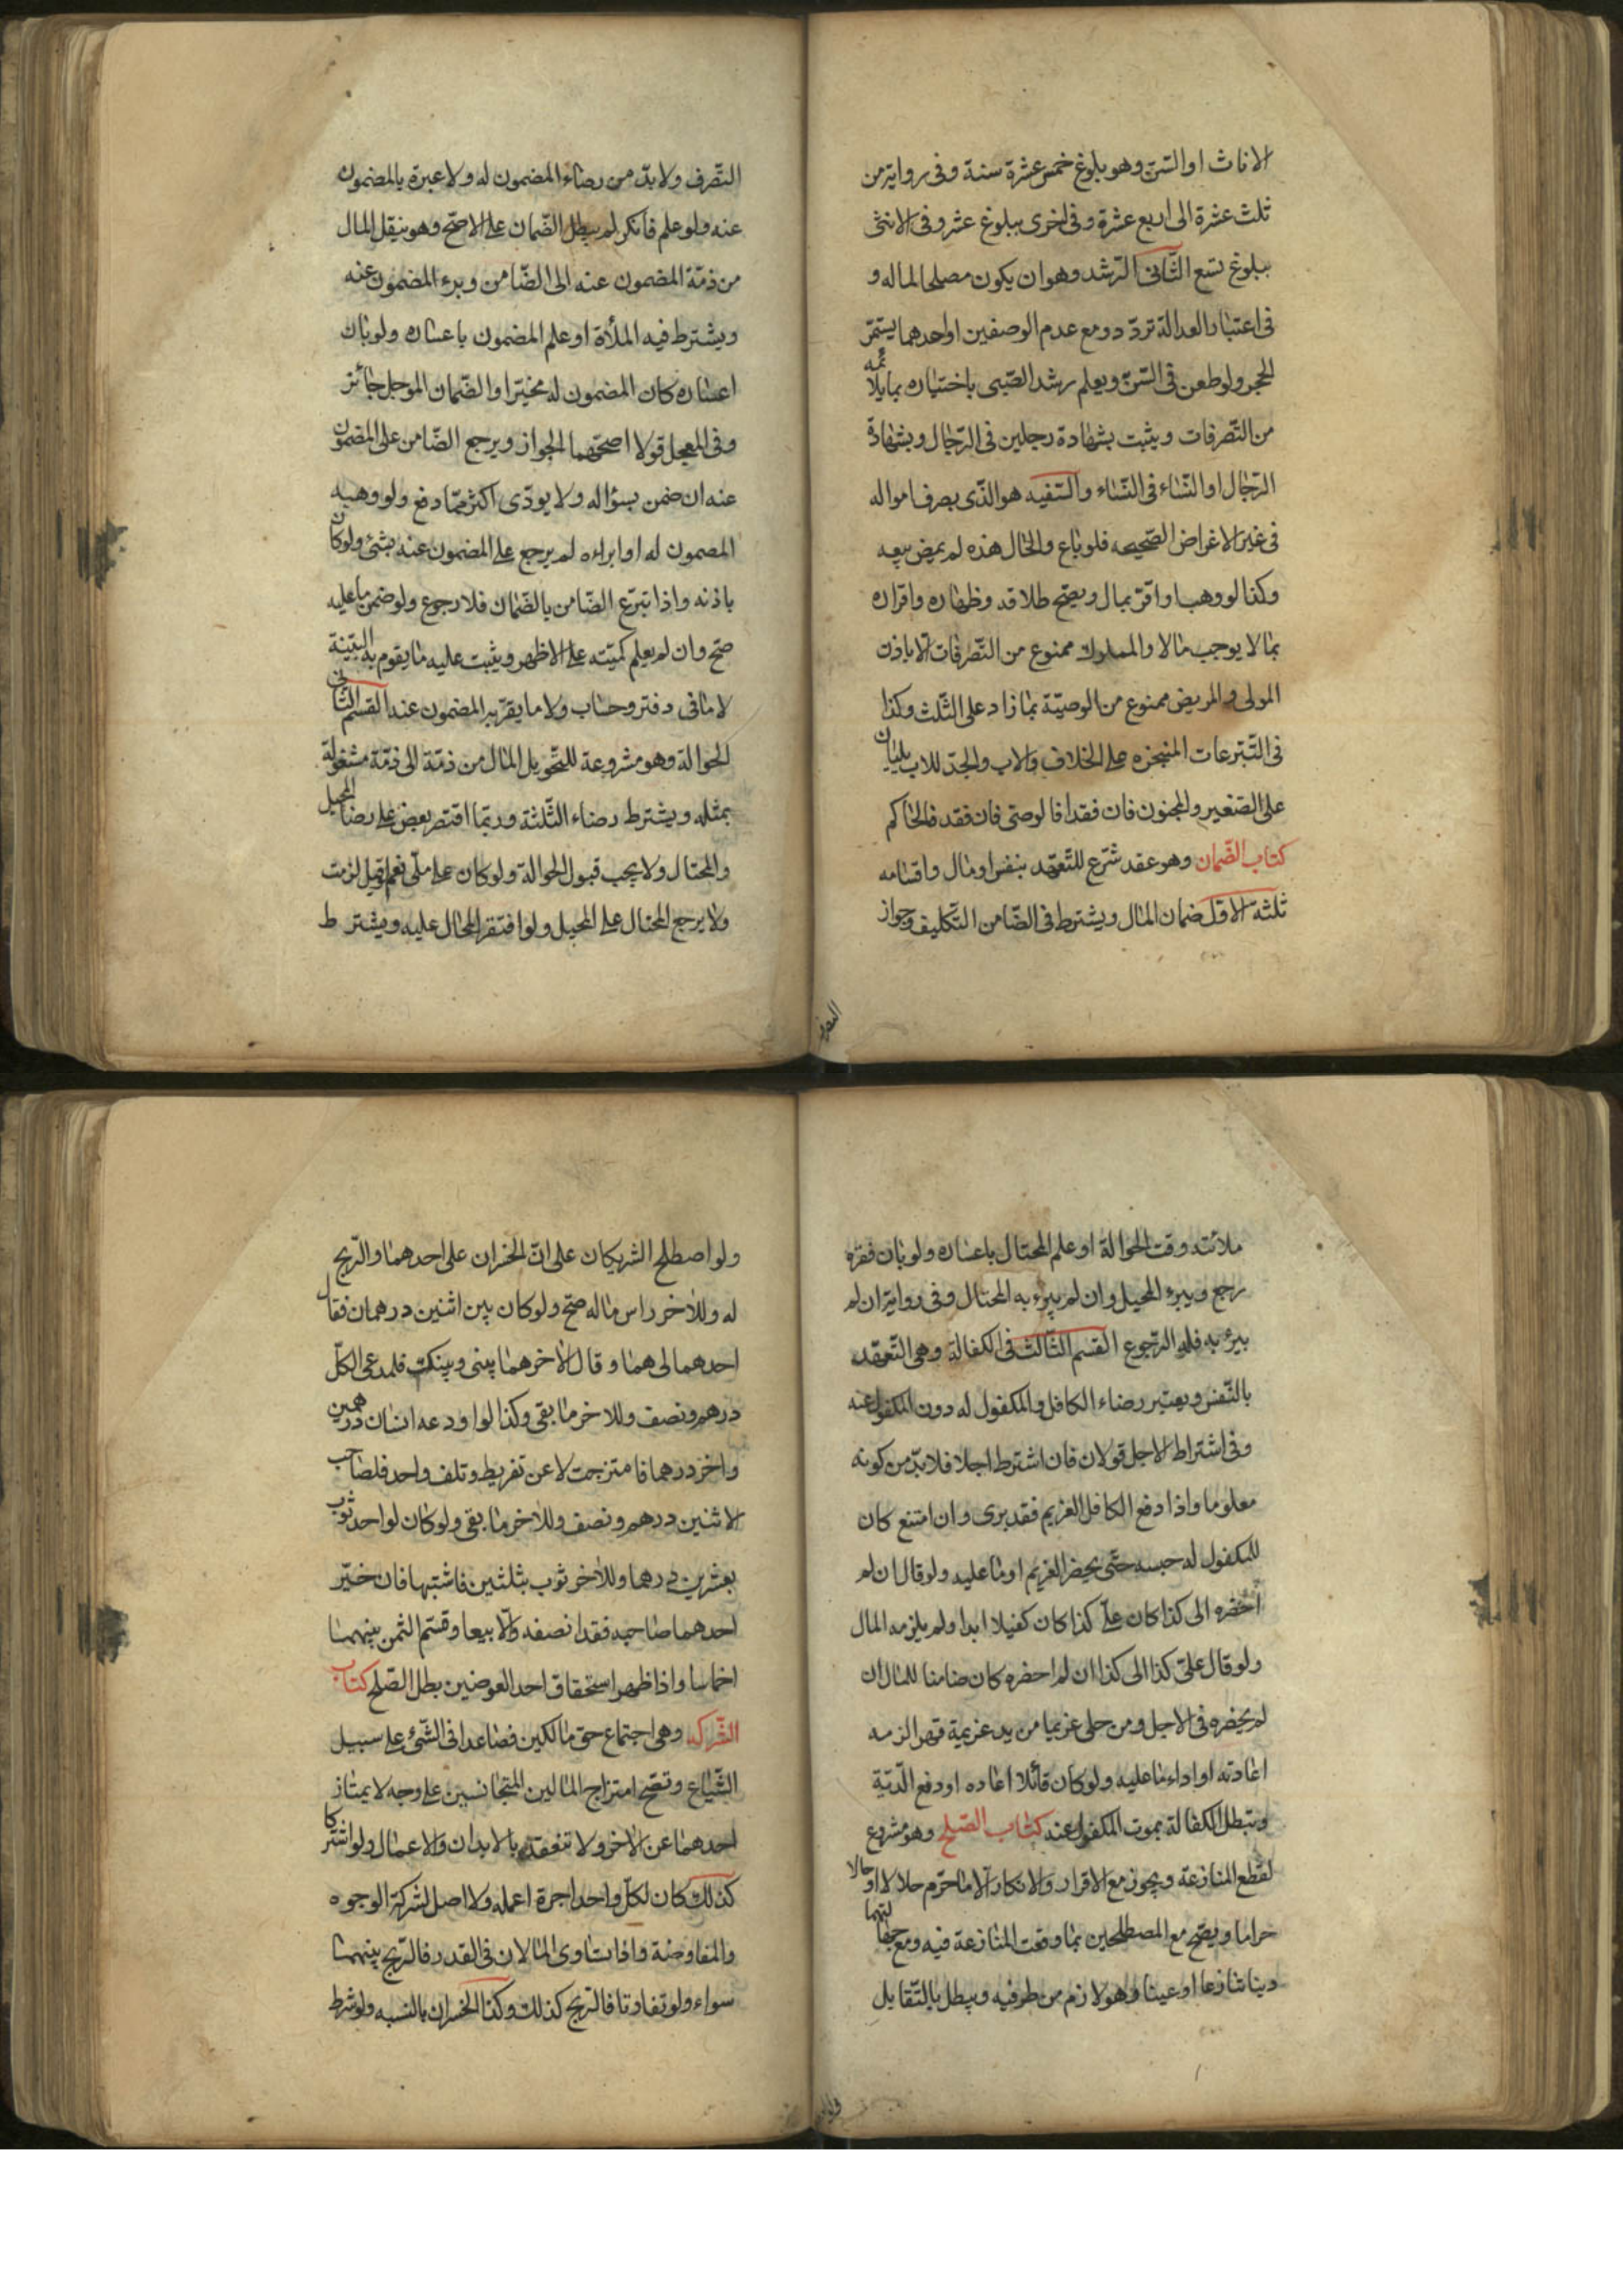 الاناث او السنّ وهو بلوغ خمس عشرة سنة وفى رواية من
ثلث عشرة الى اربع عشرة وفى اخرى ببلوغ عشر وفى الانثى
ببلوغ تسع الثّانى الرّشد وهو ان يكون مصلحا لماله و
فى اعتبار العدالة تردّد ومع عدم الوصفين او احدهما يستمرّ
الحجر ولو طعن فى السنّ ويعلم رشد الصّبى باختباره بما يلائمه
من التّصرفات ويثبت بشهادة رجلين فى الرّجال وبشهادة
الرّجال او النّساء فى النّساء والسّفيه هو الذّى يصرف امواله
فى غير الاغراض الصّحيحه فلو باع والحال هذه لم يمض بيعه
وكذا لو وهب او اقرّ بمال ويصحّ طلاقه وظهاره واقراره
بما لا يوجب مالا والمملوك ممنوع من التّصرفات الّا باذن
المولى والمريض ممنوع من الوصيّة بما زاد على الثّلث وكذا
فى التّبرعات المنجزه على الخلاف والاب والجدّ للاب يليان
على الصّغير والمجنون فان فقدا فالوصى فان فقد فالحاكم
كتاب الضّمان وهو عقد شرّع للتّعهّد بنفس او مال واقسامه
ثلثة الاوّل ضمان المال ويشترط فى الضّامن التّكليف وجواز
التّصرف ولابدّ من رضاء المضمون له ولا عبرة بالمضمون
عنه ولو علم فانكر لم يبطل الضّمان على الاصحّ وهو ينقل المال
من ذمّة المضمون عنه الى الضّامن وبرء المضمون عنه
ويشترط فيه الملأة او علم المضمون باعساره ولو بان
اعساره كان المضمون له مخيّرا والضّمان الموجل جائز
وفى المعجل قولا اصحّهما الجواز ويرجع الضّامن على المضمون
عنه ان ضمن بسؤاله ولا يودّى اكثر ممّا دفع ولو وهبه
المضمون له او ابراءه لم يرجع على المضمون عنه بشئ ولو كان
باذنه واذا تبرّع الضّامن بالضّمان فلا رجوع ولو ضمن ما عليه
صحّ وان لم يعلم كميّته على الاظهر ويثبت عليه ما يقوم به البيّنة
لا ما فى دفتر وحساب ولا ما يقرّبه المضمون عنه القسم الثّانى
الحوالة وهو مشروعة للتّحويل المال من ذمّة الى ذمّة مشغولة
بمثله ويشترط رضاء الثّلثة وربّما اقتصر بعض على رضا المحيل
والمحتال ولا يجب قبول الحوالة ولو كان على ملّى نعم لو قبل لزمت
ولا يرجع المحتال على المحيل ولو افتقر المحال عليه ويشترط
ملائته وقت الحوالة او علم المحتال باعساره ولو بان فقره
رجع ويبرء المحيل وان لم يبرء به المحتال وفى رواية ان لم
يبرء به فله الرّجوع القسم الثّالث فى الكفالة وهى التّعهّد
بالنّفس ويعتبر رضاء الكافل والمكفول له دون المكفول عنه
وفى اشتراط الاجل قولان فان اشترط اجلا فلا بدّ من كونه
معلوما واذا دفع الكافل الغريم فقد برى وان امتنع كان
للمكفول له حبسه حتّى يحضر الغريم او ما عليه ولو قال ان لم
احضره الى كذا كان علىّ كذا كان كفيلا ابدا ولم يلزمه المال
ولو قال علىّ كذا الى كذا ان لم احضره كان ضامنا للمال ان
لم يحضره فى الاجل ومن خلى غريما من يد غريمة قهرا لزمه
اعادته او اداء ما عليه ولو كان قاتلا اعاده او دفع الدّية
وتبطل الكفالة بموت المكفول عنه كتاب الصّلح وهو مشروع
لقطع المنازعة ويجوز مع الاقرار والانكار الّا ما حرّم حلالا او حالا
حراما ويصّح مع المصطلحين بما وقعت المنازعة فيه ومع جهالتهما
دينا تنازعا او عينا وهو لازم من طرفيه ويبطل بالتّقايل
ولو اصطلح الشريكان على انّ الخسران على احدهما والرّبح
له وللاخر راس ماله صحّ ولو كان بين اثنين درهمان فقال
احدهما لى هما وقال الاخر هما بينى وبينك فلمدعى الكلّ
درهم ونصف وللاخر ما بقى وكذا لو اودعه انسان درهمين
واخر درهما فامتزجت لا عن تفريط وتلف واحد فلصاحب
الاثنين درهم ونصف وللاخر ما بقى ولو كان لواحد ثوب
بعشرين درهما وللاخر ثوب بثلثين فاشتبها فان خيّر
احدهما صاحبه فقد انصفه والّا بيعا وقسّم الثمن بينهما
اخماسا واذا ظهر استحقاق احد العوضين بطل الصّلح كتاب
الشّركه وهى اجتماع حق مالكين فصاعدا فى الشّئ على سبيل
الشّياع وتصّح امتزاج المالين المتجانسين على وجه لا يمتاز
احدهما عن الاخر ولا تنعقد بالابدان والاعمال ولو اشتركا
كذلك كان لكلّ واحد اجرة اعماله ولا اصل لشركة الوجوه
والمفاوضة واذا تساوى المالان فى القدر فالرّبح بينهما
سواء ولو تفاوتا فالرّبح كذلك وكذا الخسران بالنسبه ولو شرط